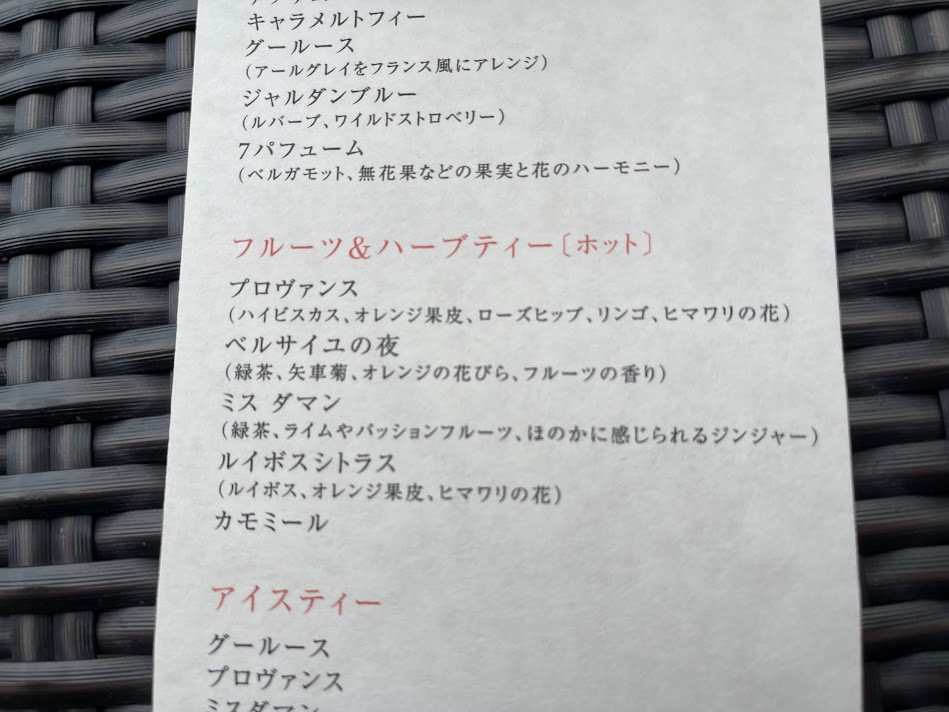 キャラメルトフィー
グールース
（アールグレイをフランス風にアレンジ）
ジャルダンブルー
（ルバーブ、ワイルドストロベリー）
7パフューム
（ベルガモット、無花果などの果実と花のハーモニー）
フルーツ&ハーブティー〔ホット〕
プロヴァンス
（ハイビスカス、オレンジ果皮、ローズヒップ、リンゴ、ヒマワリの花）
ベルサイユの夜
（緑茶、矢車菊、オレンジの花びら、フルーツの香り）
ミス ダマン
（緑茶、ライムやパッションフルーツ、ほのかに感じられるジンジャー）
ルイボスシトラス
（ルイボス、オレンジ果皮、ヒマワリの花）
カモミール
アイスティー
グールース
プロヴァンス
ミスダマン